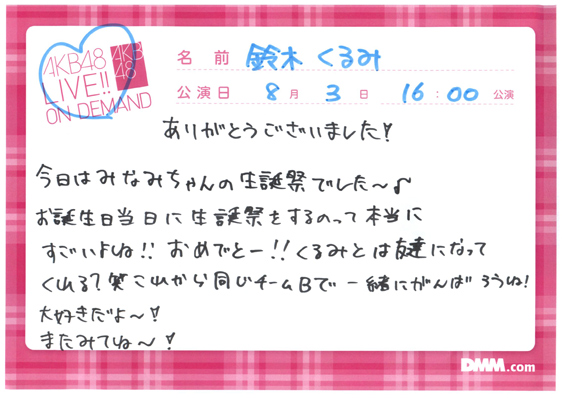 AKB48
LIVE!!
ON DEMAND
AKB
48
名前 鈴木くるみ
公演日 8月 3日 16:00 公演
ありがとうございました!
今日はみなみちゃんの生誕祭でした〜♪
お誕生日当日に生誕祭をするのって本当に
すごいよね!! おめでとー!! くるみとは友達になって
くれる?笑 これから同じチームBで一緒にがんばろうね!
大好きだよ〜!
またみてね〜!
DMM.com